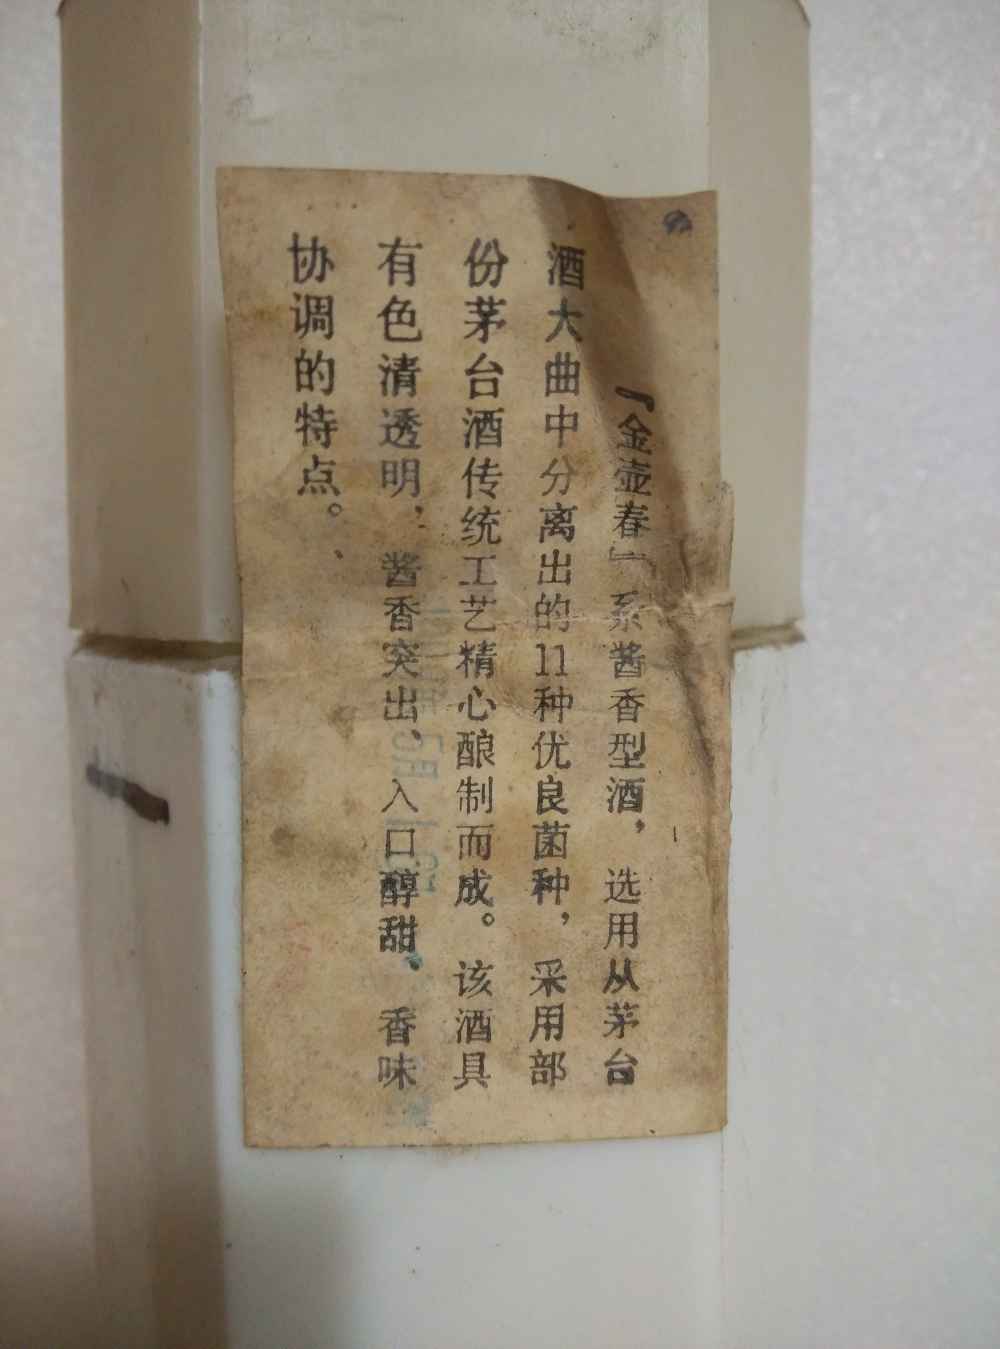 『金壶春』系酱香型酒，选用从茅台
酒大曲中分离出的11种优良菌种，采用部
份茅台酒传统工艺精心酿制而成。该酒具
有色清透明、酱香突出、入口醇甜、香味
协调的特点。